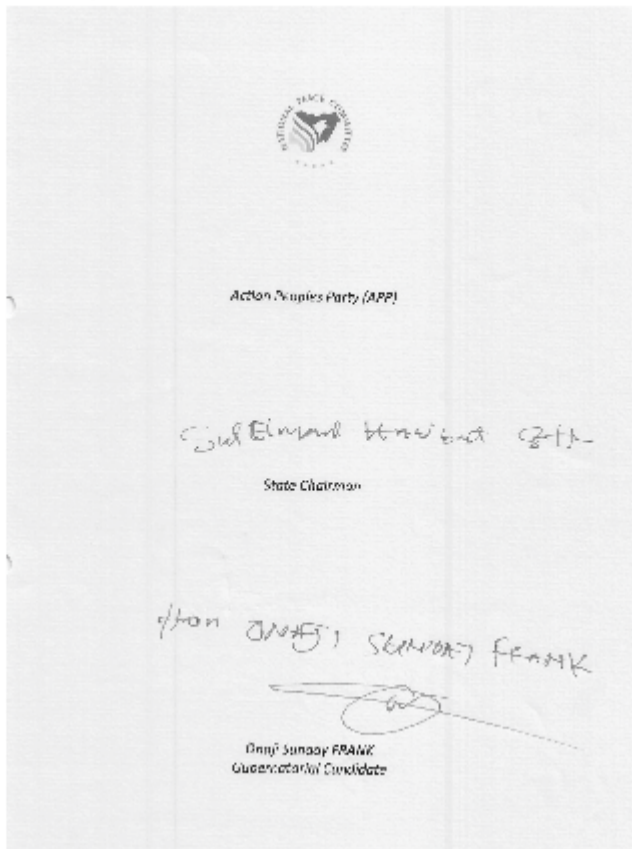 NATIONAL PEACE COMMITTEE
Action Peoples Party (APP)
State Chairman
Hon ONAJI SUNDAY FRANK
Onaji Sunday FRANK
Gubernatorial Candidate